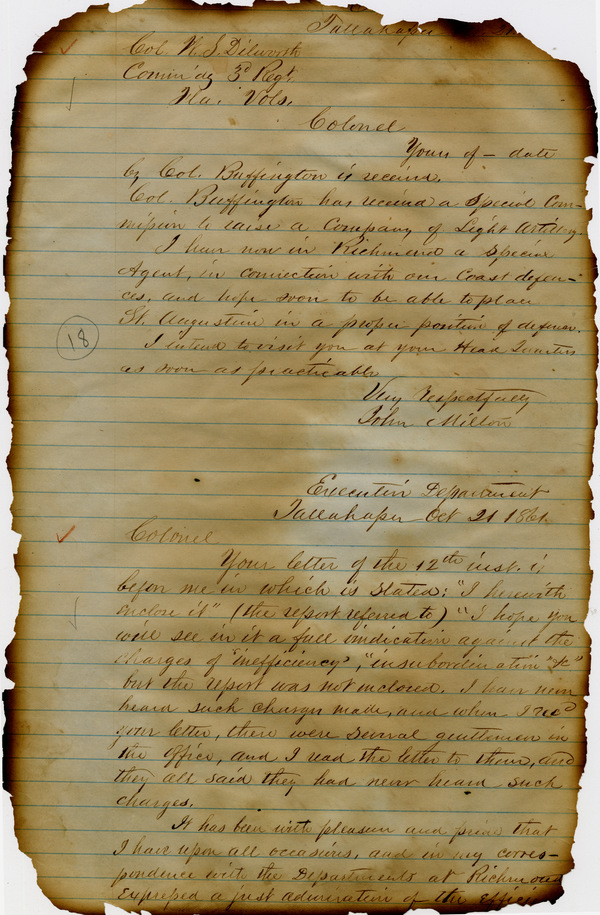 Tallahassee
Col W. S. Dilworth
Comm'dg 3d Regt
Fla. Vols.
Colonel
Yours of - date
by Col. Buffington is received.
Col. Buffington has received a Special Com-
mission to raise a Company of Light Artillery.
I have now in Richmond a Special
Agent, in connection with our Coast defen-
ces, and hope soon to be able to place
St. Augustine in a proper position of defence.
18
I intend to visit you at your Head Quarters
as soon as practicable
Very Respectfully
John Milton
Executive Department
Tallahassee Oct 21 1861
Colonel
Your letter of the 12th inst. is
before me in which is stated: "I herewith
enclose it" (the report referred to) "I hope you
will see in it a full vindication against the
charges of "inefficiency", "insubordination &c"
but the report was not inclosed. I have never
heard such charges made, and when I rec'd
your letter, there were several gentlemen in
the office, and I read the letter to them, and
they all said they had never heard such
charges.
It has been with pleasure and pride that
I have upon all occasions, and in my corres-
pondence with the Departments at Richmond
Expressed a just admiration of the